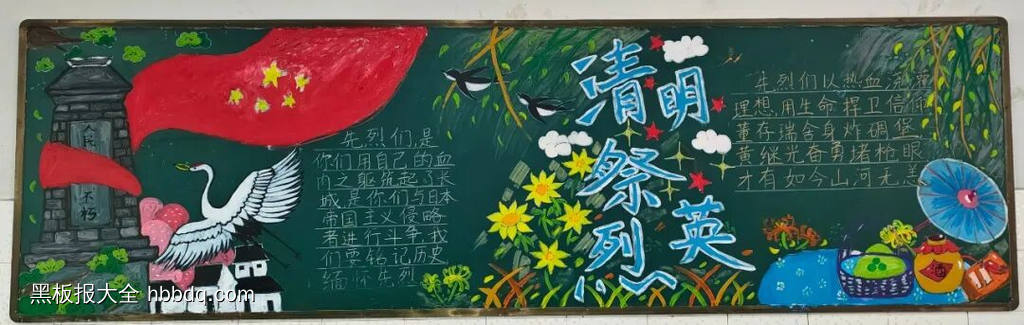 人民
不朽
先烈们,是
你们用自己的血
肉之躯筑起了长
城,是你们与日本
帝国主义侵略
者进行斗争,我
们要铭记历史
缅怀先烈
清明
祭英烈
先烈们以热血
理想,用生命捍卫信仰
董存瑞舍身炸碉堡
黄继光奋勇堵枪眼
才有如今山河无恙
酒
黑板报大全 hbbdq.com